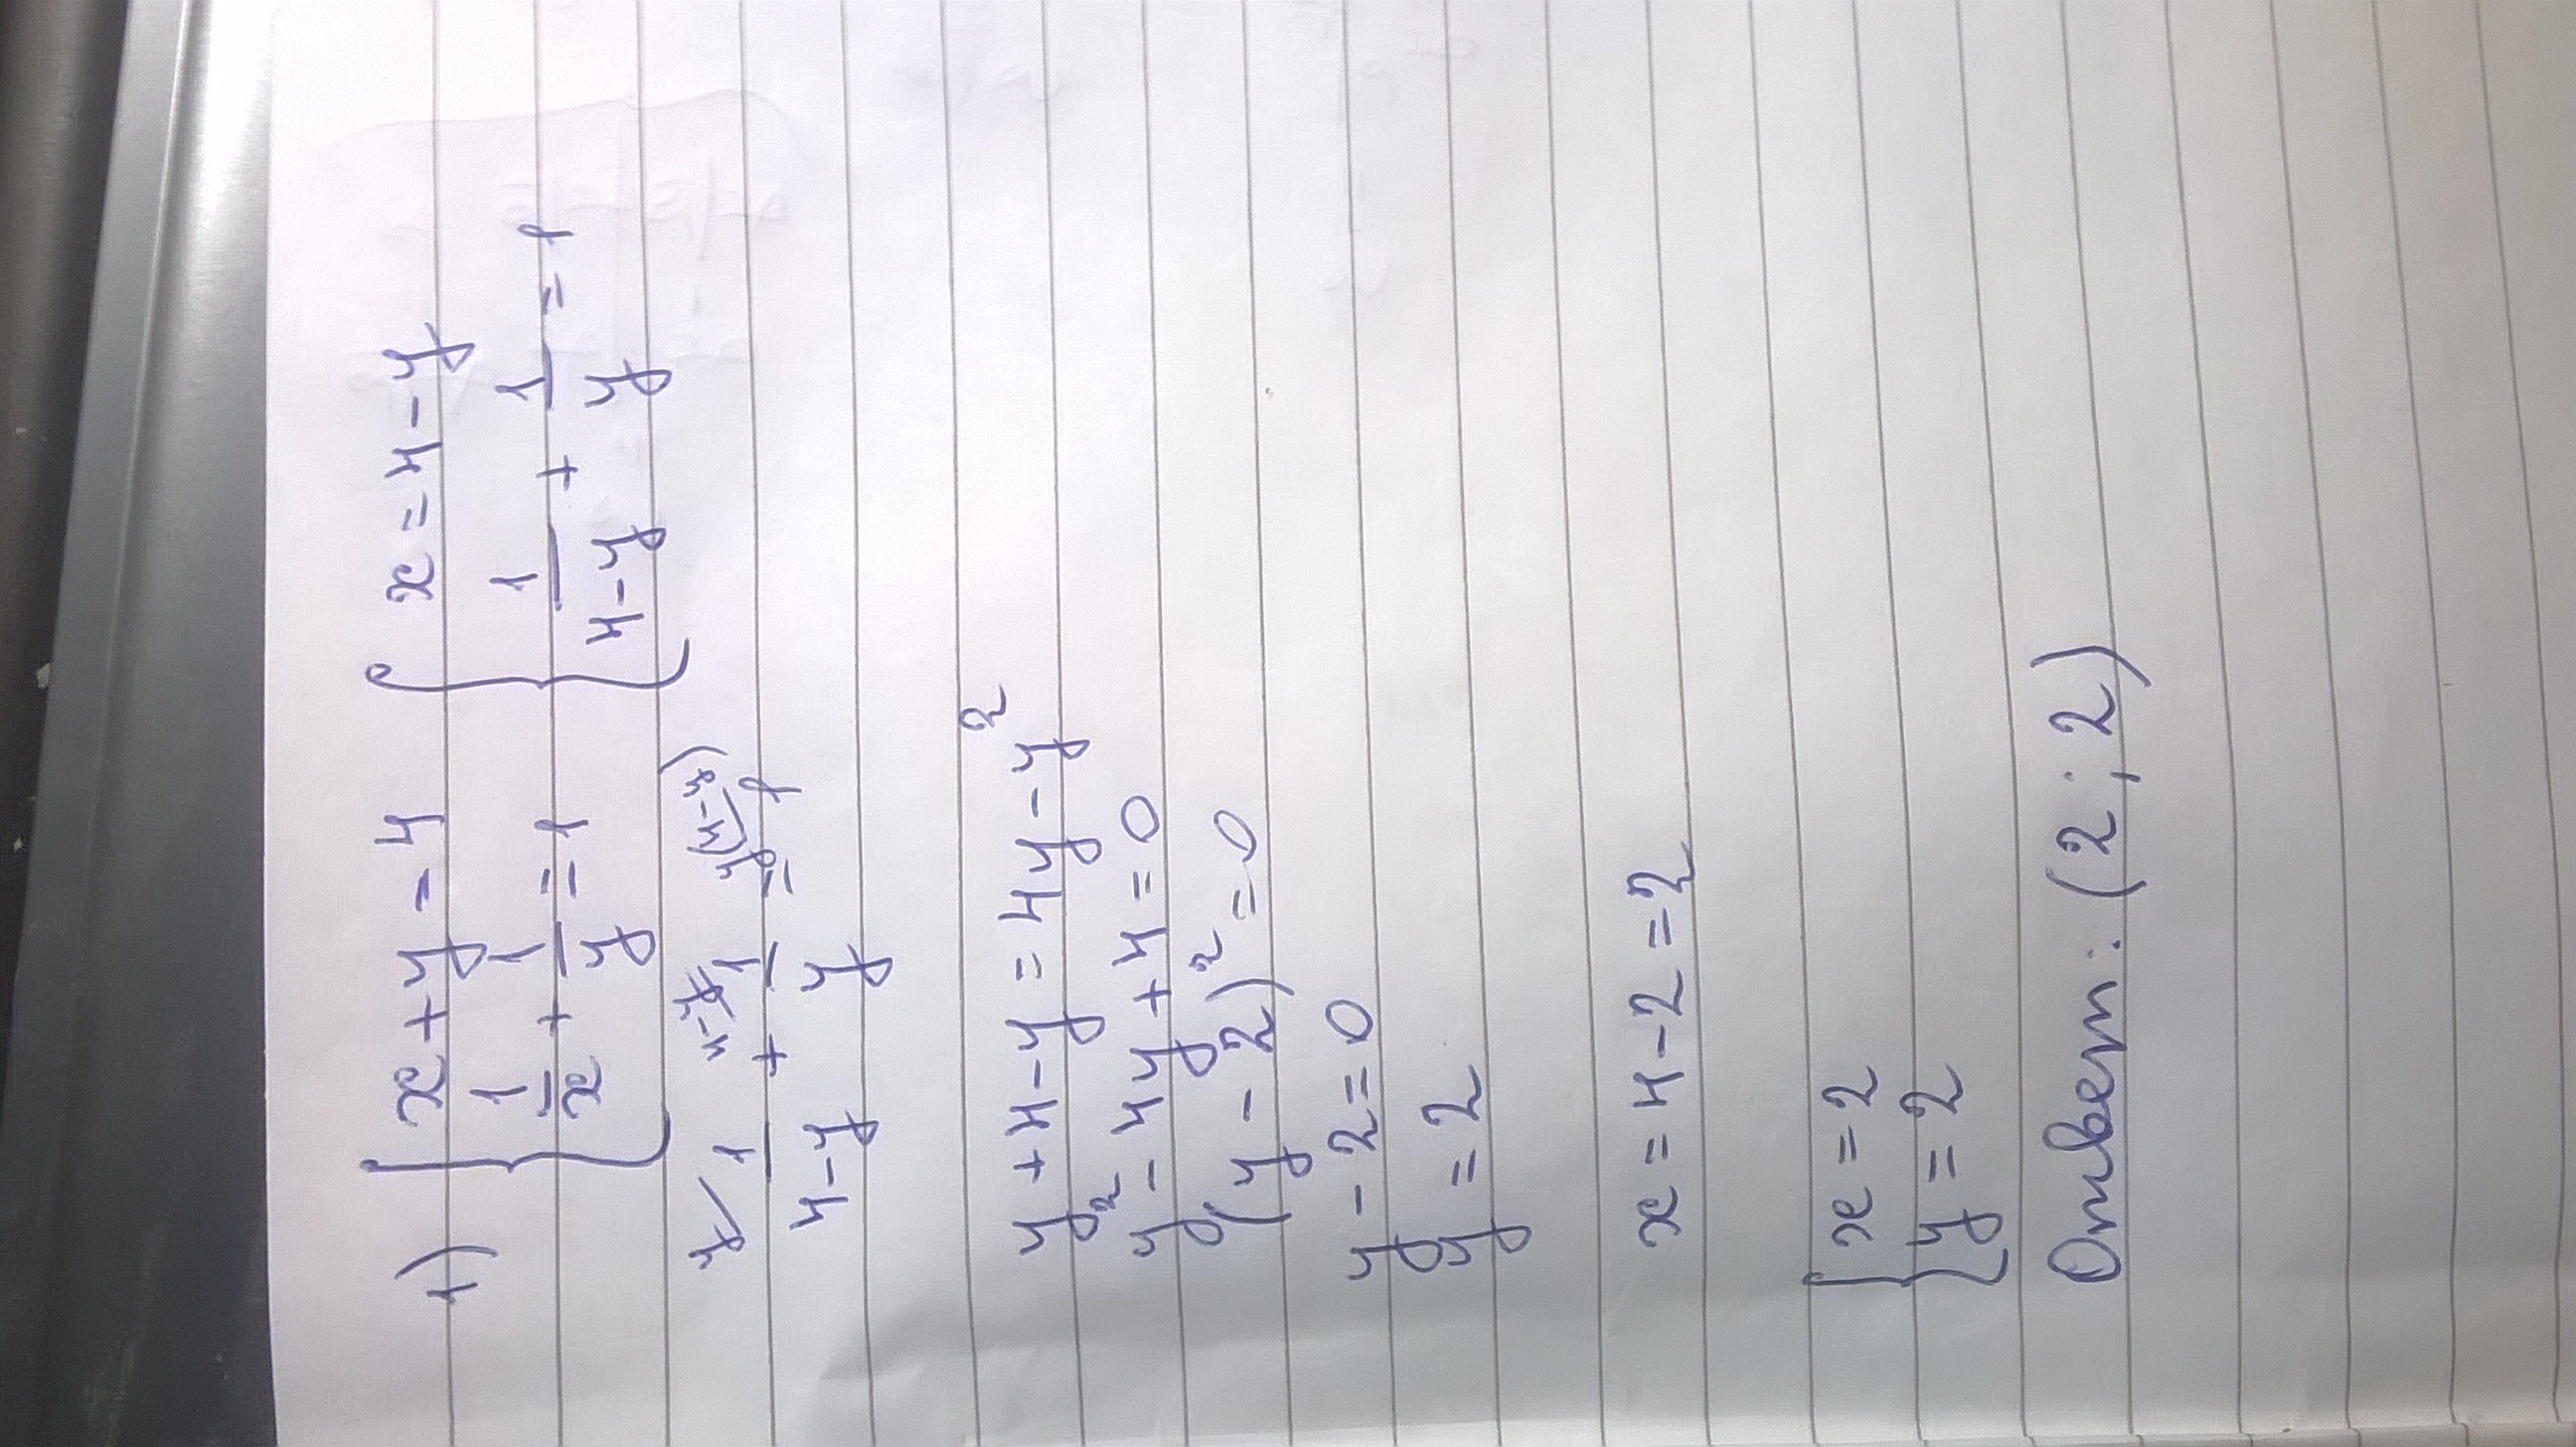 1) { x + y = 4 { x = 4 - y
1/x + 1/y = 1 1/(4-y) + 1/y = 1
y/ 1/(4-y) + 4-y/ 1/y = y(4-y)/ 1
y + 4 - y = 4y - y²
y² - 4y + 4 = 0
(y - 2)² = 0
y - 2 = 0
y = 2
x = 4 - 2 = 2
{ x = 2
y = 2
Ответ: (2; 2)